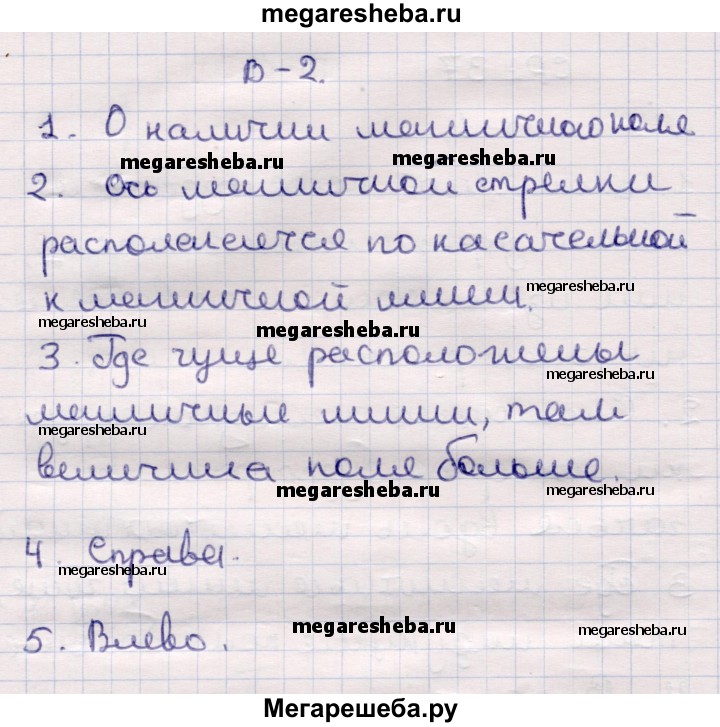 megaresheba.ru
В-2.
1. О наличии магнитного поля
megaresheba.ru megaresheba.ru
2. Ось магнитной стрелки
располагается по касательной
megaresheba.ru
к магнитной линии.
megaresheba.ru megaresheba.ru
3. Где гуще расположены
megaresheba.ru
магнитные линии, там
megaresheba.ru
величина поля больше.
megaresheba.ru megaresheba.ru
4. Справа.
megaresheba.ru
5. Влево.
megaresheba.ru megaresheba.ru
Мегарешеба.ру